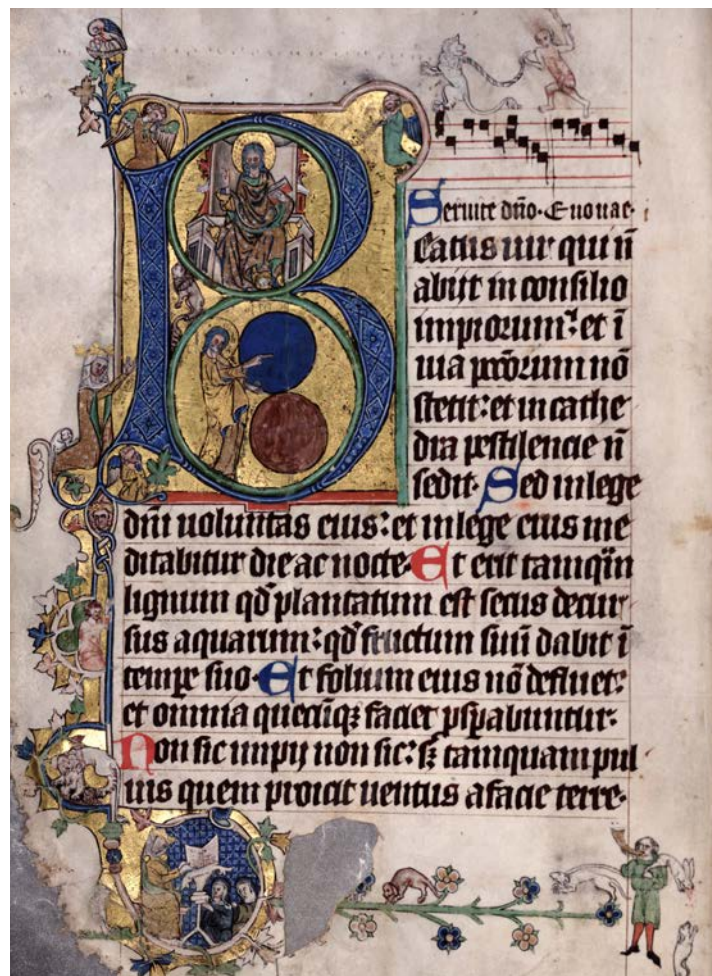 Seruite dño. Euouae.
Beatus uir qui ñ
abijt in consilio
impiorum: et ĩ
uia pc̃c̃orum nõ
stetit: et in cathe
dra pestilencie ñ
sedit. Sed in lege
dñi uoluntas eius: et in lege eius me
ditabitur die ac nocte. Et erit tamq̃m
lignum qd̃ plantatum est secus decur
sus aquarum: qd̃ fructum suũ dabit ĩ
tempr̃e suo. Et folium eius nõ defluet:
et omnia quecũqꝫ faciet ꝓsꝑabuntur.
Non sic impij non sic: sꝫ tamquam pul
uis quem proicit uentus a facie terre.